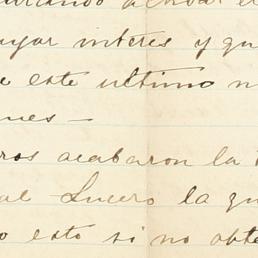 ayor interes y qu
e este ultimo n
nes —
ros acabaron la
al Lucero la qu
o esto si no obte